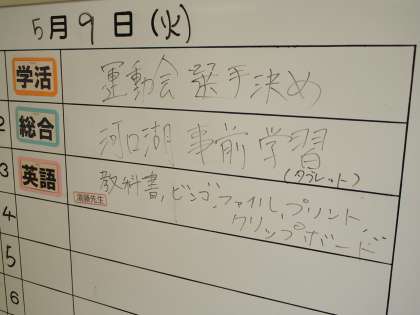 5月9日(火)
学活 運動会 選手決め
2 総合 河口湖 事前学習
(タブレット)
3 英語 教科書, ビンゴ, ファイル, プリント,
クリップボード
4
5
6